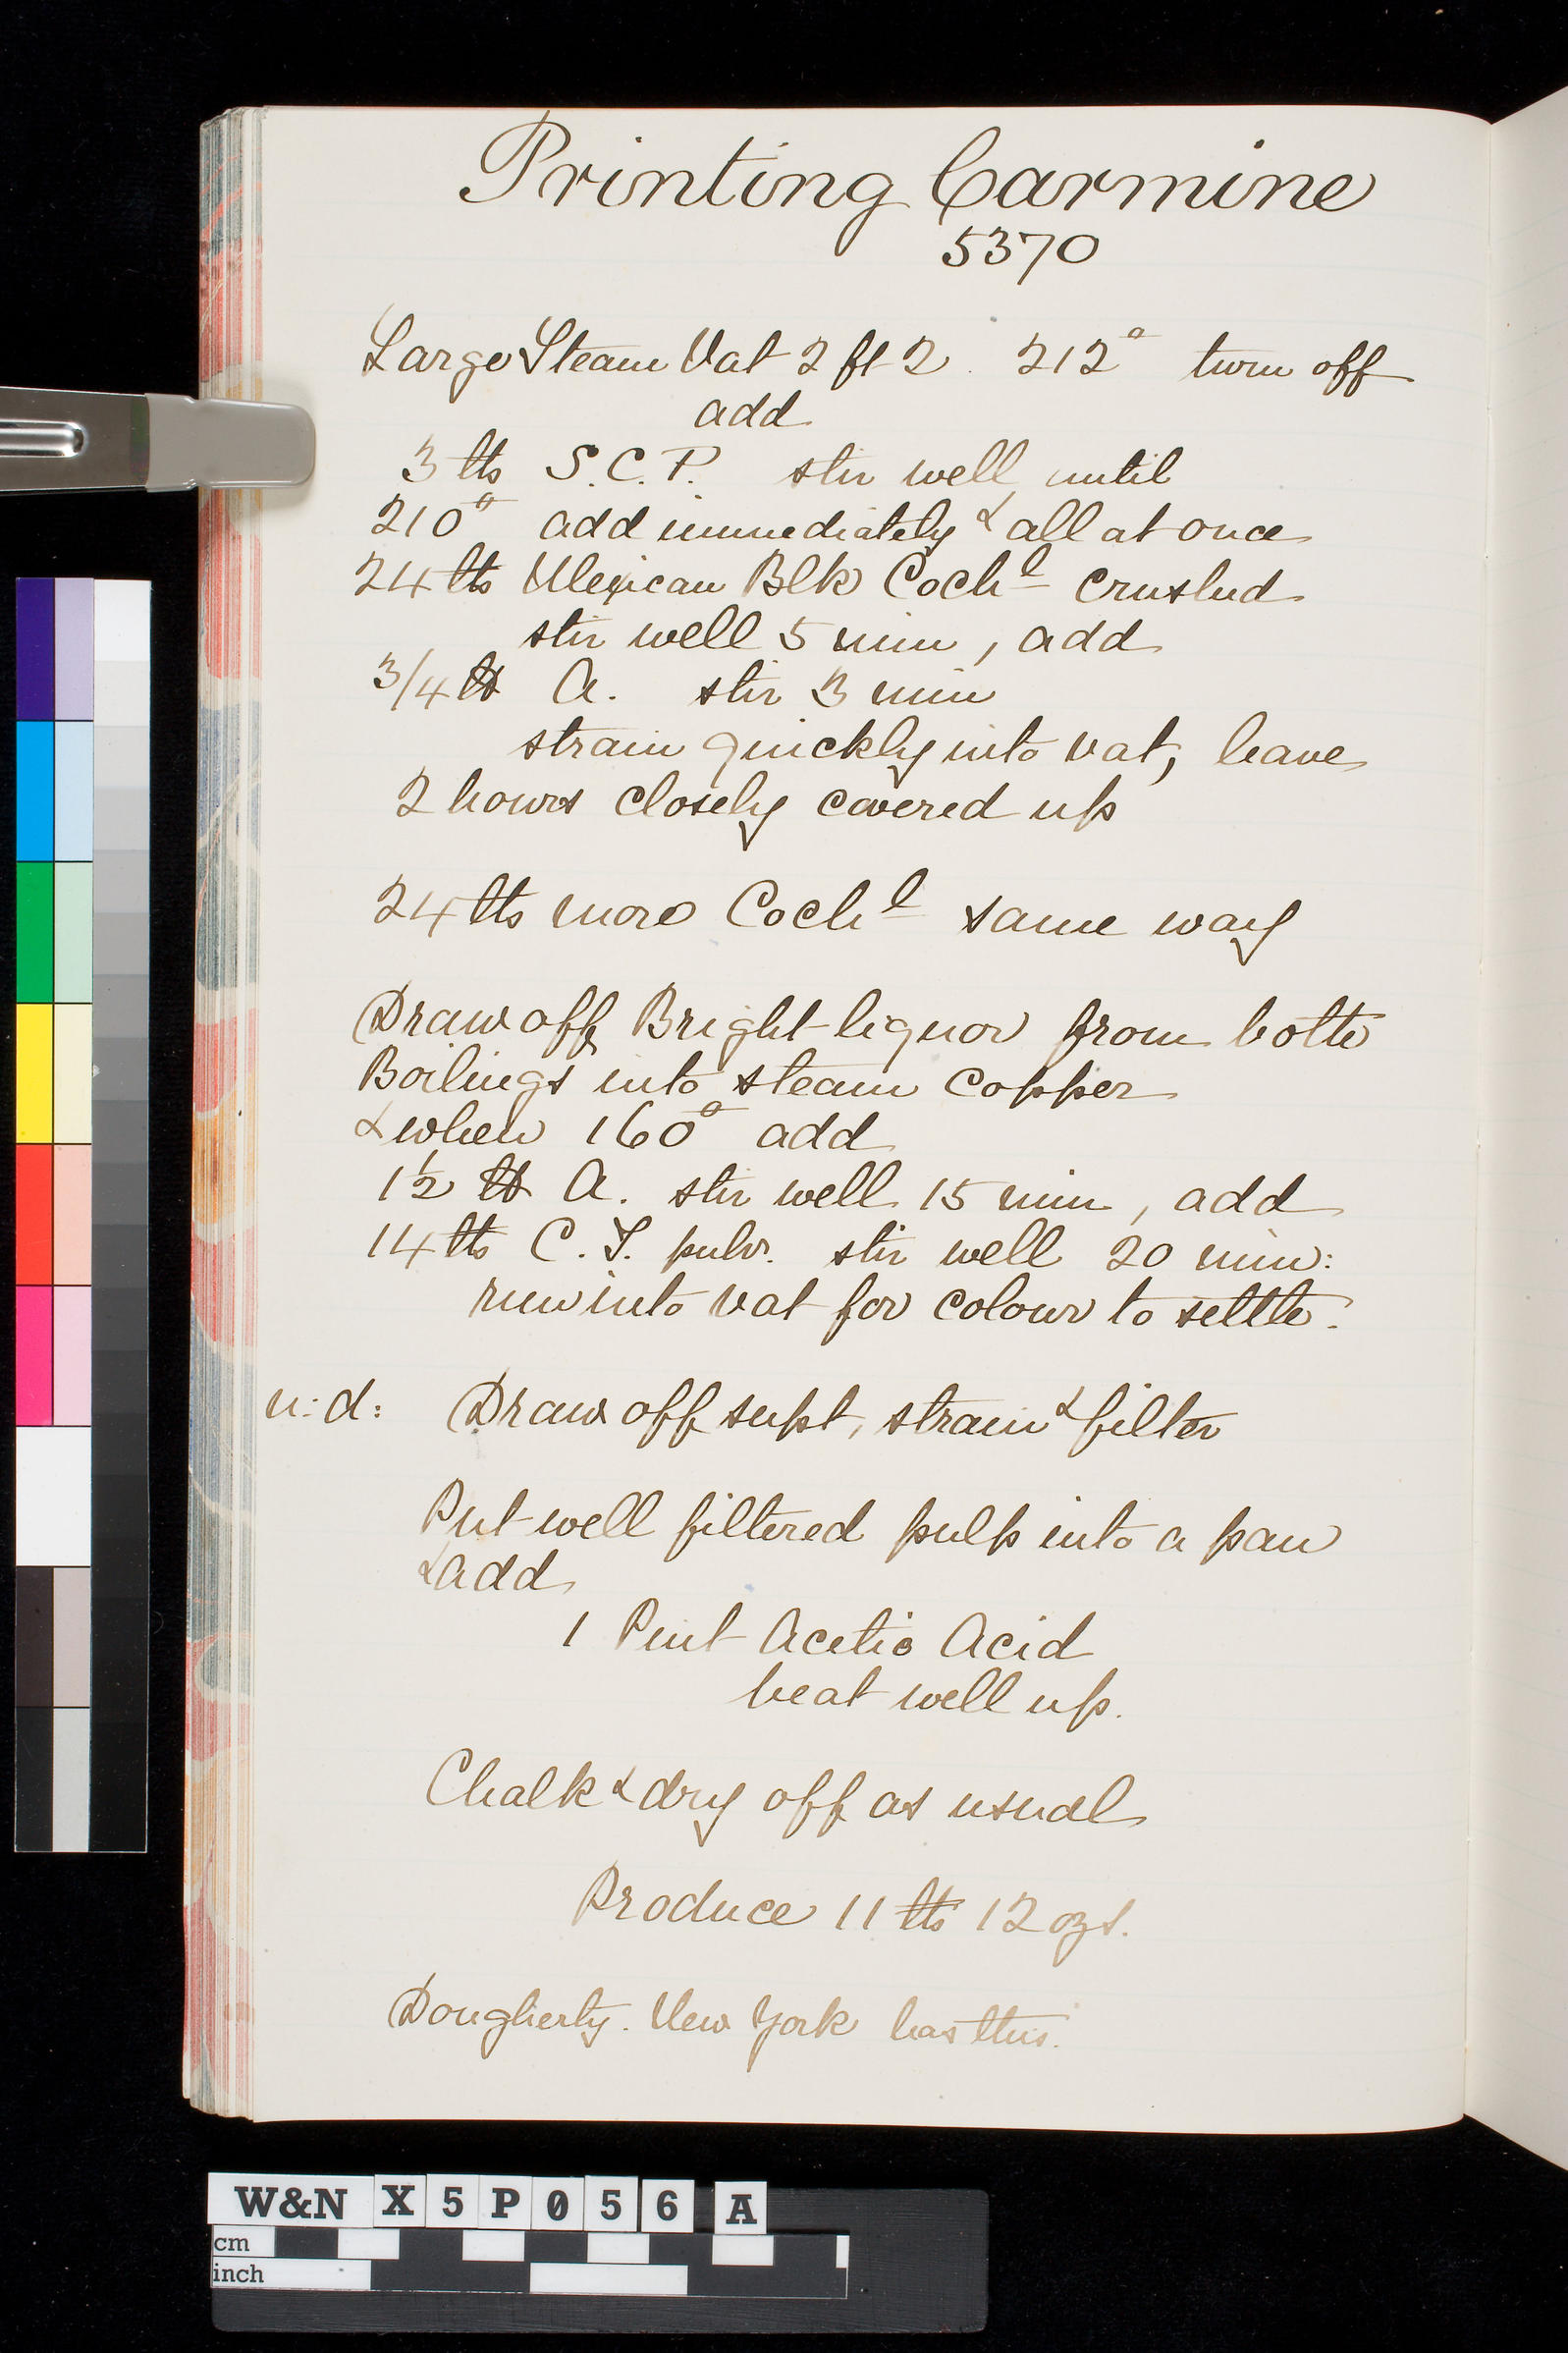 Printing Carmine
5370
Large Steam Vat 2 ft 2. 212° turn off
add
3 lbs S.C.P. stir well until
210° add immediately & all at once
24 lbs Mexican Blk Cochl crushed
stir well 5 min, add
3/4 lb A. stir 3 min
strain quickly into vat, leave
2 hours closely covered up
24 lbs more Cochl same way
Draw off Bright liquor from both
Boilings into steam copper
& when 160° add
1½ lb A. stir well 15 min, add
14 lbs C.T. pulv. stir well 20 min:
run into vat for colour to settle.
n:d: Draw off supt, strain & filter
Put well filtered pulp into a pan
& add
1 Pint Acetic Acid
beat well up.
Chalk & dry off as usual
Produce 11 lbs 12 ozs.
Dougherty. New York has this.
W&N X5P056 A
cm
inch